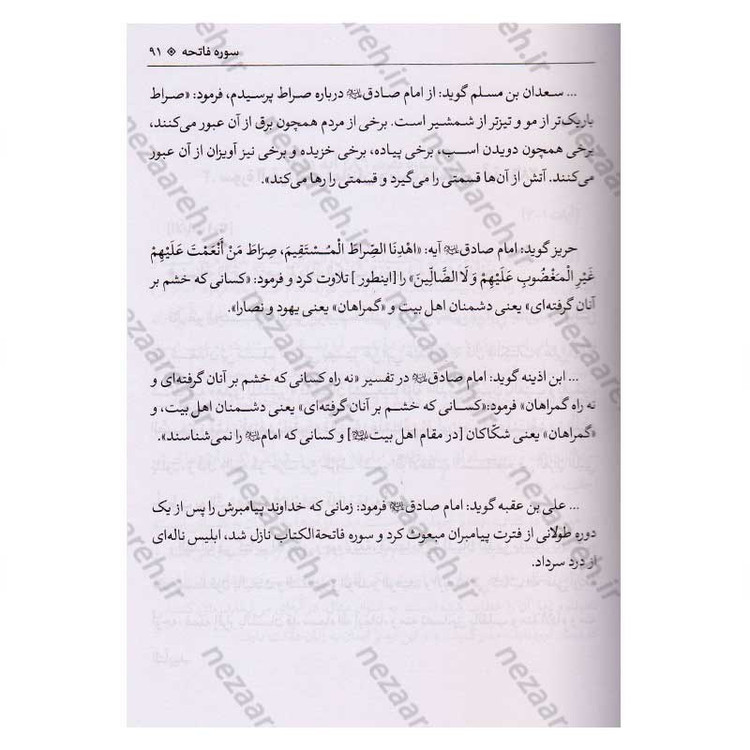 سوره فاتحه ※ ۹۱
... سعدان بن مسلم گوید: از امام صادق درباره صراط پرسیدم، فرمود: «صراط
باریک‌تر از مو و تیزتر از شمشیر است. برخی از مردم همچون برق از آن عبور می‌کنند،
برخی همچون دویدن اسب، برخی پیاده، برخی خزیده و برخی نیز آویزان از آن عبور
می‌کنند. آتش از آن‌ها قسمتی را می‌گیرد و قسمتی را رها می‌کند».
حریز گوید: امام صادق آیه: «اهْدِنَا الصِّرَاطَ الْمُسْتَقِيمَ، صِرَاطَ مَنْ أَنْعَمْتَ عَلَيْهِمْ
غَيْرِ الْمَغْضُوبِ عَلَيْهِمْ وَلَا الضَّالِّينَ» را [اینطور] تلاوت کرد و فرمود: «کسانی که خشم بر
آنان گرفته‌ای» یعنی دشمنان اهل بیت و «گمراهان» یعنی یهود و نصارا».
... ابن اذینه گوید: امام صادق در تفسیر «نه راه کسانی که خشم بر آنان گرفته‌ای و
نه راه گمراهان» فرمود:«کسانی که خشم بر آنان گرفته‌ای» یعنی دشمنان اهل بیت، و
«گمراهان» یعنی شکّاکان [در مقام اهل بیت] و کسانی که امام را نمی‌شناسند».
... علی بن عقبه گوید: امام صادق فرمود: زمانی که خداوند پیامبرش را پس از یک
دوره طولانی از فترت پیامبران مبعوث کرد و سوره فاتحةالکتاب نازل شد، ابلیس ناله‌ای
از درد سرداد.
nezaareh.ir